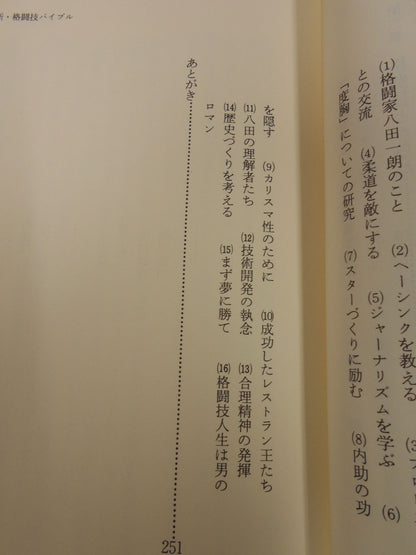 新・格闘技バイブル
(1)格闘家八田一朗のこと (2)ヘーシンクを教える
との交流 (4)柔道を敵にする (5)ジャーナリズムを学ぶ (6)
「度胸」についての研究 (7)スターづくりに励む (8)内助の功
を隠す (9)カリスマ性のために (10)成功したレストラン王たち
(11)八田の理解者たち (12)技術開発の執念 (13)合理精神の発揮
(14)歴史づくりを考える (15)まず夢に勝て (16)格闘技人生は男の
ロマン
あとがき……………………………………251